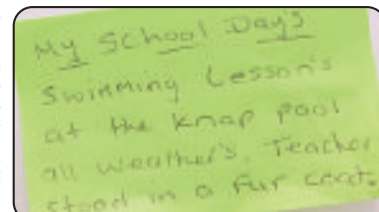 My School Day's
Swimming Lesson's
at the Knap Pool
all weather's. Teacher
stood in a fur coat.